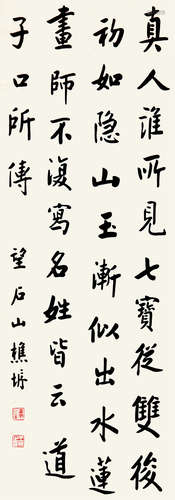 真人誰所見七寶從雙狻
初如隐山玉漸似出水蓮
畫師不復寫名姓皆云道
子口所傳 望石山樵